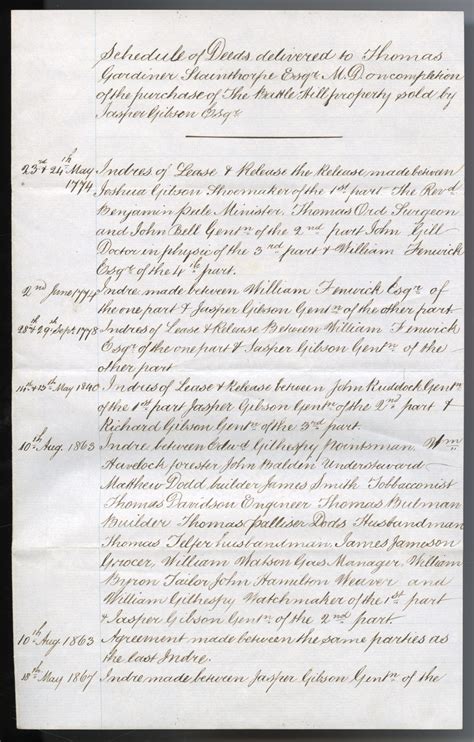 Schedule of Deeds delivered to Thomas
Gardiner Stainthorpe Esqre M.D on completion
of the purchase of The Battle Hill property sold by
Jasper Gibson Esqre
23rd & 24th May 1774 Indres of Lease & Release the Release made between
Joshua Gibson Shoemaker of the 1st part The Revd
Benjamin Peile Minister, Thomas Ord Surgeon
and John Bell Gentn of the 2nd part John Gill
Doctor in physic of the 3rd part & William Fenwick
Esqre of the 4th part.
2nd June 1774 Indre made between William Fenwick Esqre of
the one part & Jasper Gibson Gentn of the other part
28th & 29th Sept 1778 Indres of Lease & Release Between William Fenwick
Esqre of the one part & Jasper Gibson Gentn of the
other part
14th & 15th May 1840 Indres of Lease & Release between John Ruddock Gentn
of the 1st part Jasper Gibson Gentn of the 2nd part &
Richard Gibson Gentn of the 3rd part.
10th Aug. 1863 Indre between Edwd Gilhespy Pointsman, Wm
Havelock forester John Balden Understeward
Matthew Dodd builder James Smith Tobbacconist
Thomas Davidson Engineer Thomas Bulman
Builder Thomas Palliser Dods Husbandman
Thomas Telfer husbandman, James Jameson
Grocer, William Watson Gas Manager, William
Byron Tailor John Hamilton Weaver and
William Gilhespy Watchmaker of the 1st part
& Jasper Gibson Gentn of the 2nd part.
10th Aug. 1863 Agreement made between the same parties as
the last Indre.
18th May 1867 Indre made between Jasper Gibson Gentn of the